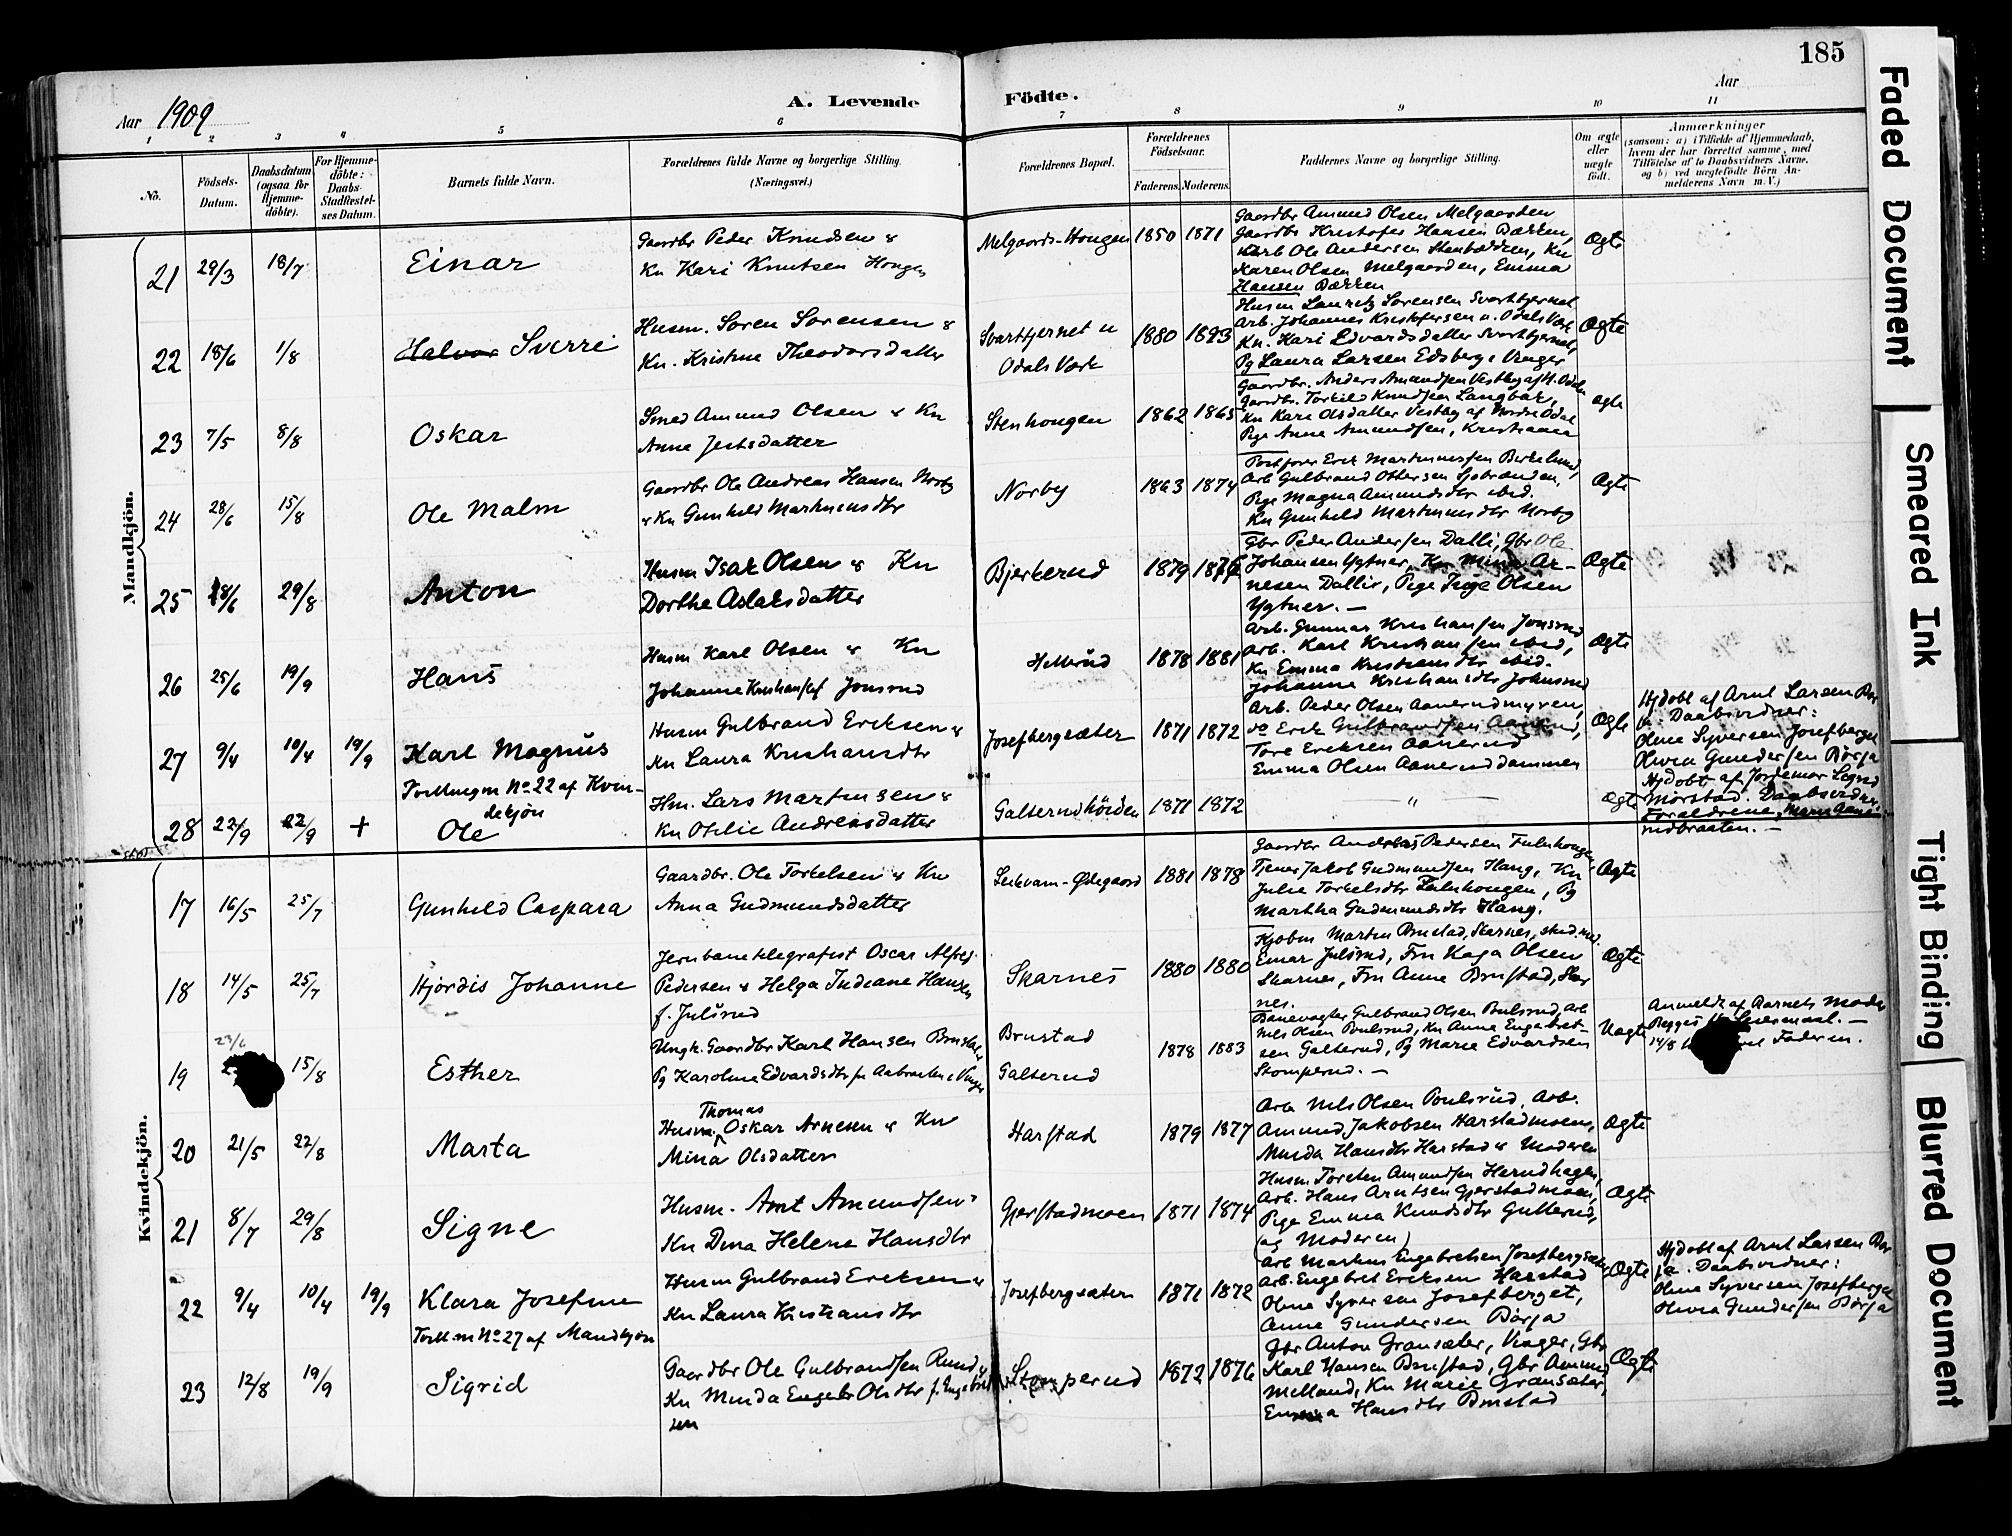 185
Aar 1909
A. Levende Födte.
Aar
1 2 3 4 5 6 7 8 9 10 11
No.
Födsels-Datum.
Daabsdatum (ogsaa for Hjemme-döbte).
For Hjemme-döbte: Daabs-Stadfæstel-ses Datum.
Barnets fulde Navn.
Forældrenes fulde Navne og borgerlige Stilling. (Næringsvei.)
Forældrenes Bopæl.
Forældrenes Födselsaar.
Faderens. Moderens.
Faddernes Navne og borgerlige Stilling.
Om ægte eller uægte födt.
Anmærkninger
(saasom: a) i Tilfælde af Hjemmedaab,
hvem der har forrettet samme, med
Tilföielse af to Daabsvidners Navne.
og b) ved uægtefödte Börn An-
melderens Navn m. V.)
Mandkjön.
21 29/3 18/7 Einar
Gaardbr Peder Knudsen &
Kn Kari Knutsen Hongen
Melgaards-Hongen 1850 1871
Gaardbr Amund Olsen Melgaarden
Gaardbr Kristofer Hansen Bækken,
Arb Ole Andersen Stenbækken, Kn
Karen Olsen Melgaarden, Emma
Hansen Bækken
Ægte
22 18/6 1/8 Halvor Sverre
Husm. Soren Sorensen &
Kn. Kristine Theodorsdatter
Svarttjernet u
Odals Værk
1880 1893
Husm Lauretz Sorensen Svarttjernet
Arb. Johannes Kristofersen u. Odals Værk
Kn. Kari Edvardsdatter Svarttjernet,
Pg Laura Larsen Edsberg i Vinger
Ægte
23 7/5 8/8 Oskar
Smed Amund Olsen & Kn
Anne Jensdatter
Stenhongen 1862 1865
Gaardbr. Anders Amundsen Vestby af N. Odalen
Gaardbr. Torkild Knudsen Langbak,
Kn Kari Olsdatter Vestby af Nordre Odal
Pige Anna Amundsen, Kristiania
Ægte
24 28/6 15/8 Ole Malm
Gaardbr Ole Andreas Hansen Norby
& Kn Gunhild Martinusdtr
Norby 1863 1874
Postfører Erik Martinussen Birkelund,
Arb Gulbrand Ottersen Sjobranden,
Pige Magna Amundsdtr ibid.
Kn Gunhild Martinusdtr Norby
Ægte
25 18/6 29/8 Anton
Husm Isak Olsen & Kn
Dorthe Aslaksdatter
Bjerkerud 1879 1876
Gbr Peder Andersen Dalli, Gbr Ole
Johansen Ygtner, Kn Mina Ar-
nesen Dallir, Pige Inge Olsen
Ygtner. —
Ægte
26 25/6 19/9 Hans
Husm Karl Olsen & Kn
Johanne Kristiansdt Jonsrud
Hellerud 1878 1881
Arb. Gunnar Kristiansen Jonsrud
Arb. Karl Kristiansen ibid,
Kn Emma Kristiansdtr ibid.
Johanne Kristiansdtr Johnsrud
Ægte
27 9/4 10/4 19/9 Karl Magnus
Tvilling m No 22 af Kvin-
dekjön
Husm Gulbrand Eriksen &
Kn Laura Kristiansdtr
Josefbergsæter 1871 1872
Arb. Peder Olsen Aanerudmyren,
do Erik Gulbrandsen Aanerud,
Tore Eriksen Aanerud
Emma Olsen Aaneruddammen
Ægte
Hjdöbt af Arnt Larsen Bor
ja. Daabsvidner:
Oline Syversen Josefberget
Olivia Gundersen Börja
28 22/9 22/9 + Ole
Hm. Lars Martinsen &
Kn Otilie Andreasdatter
Galterudhöiden 1871 1872
— " —
Ægte
Hjdöbt af Jordemor Signe
Morstad. Daabsvidner:
Forældrene, Maren Aane-
rudbraaten. —
Kvindekjön.
17 16/5 25/7 Gunhild Caspara
Gaardbr. Ole Torkelsen & Kn
Anna Gudmundsdatter
Leikvam-Ødegaard 1881 1878
Gaardbr Andreas Pedersen Fuluhongen,
Tjener Jakob Gudmundsen Haug, Kn
Julie Torkelsdtr Fuluhongen, Pg
Martha Gudmundsdtr Haug.
Ægte
18 14/5 25/7 Hjördis Johanne
Jernbanetelegrafist Oscar Alfred
Pedersen & Helga Indiane Hansen
f. Julsrud
Skarnes 1880 1880
Kjöbm Martin Brustad, Skarnes, stud. med.
Einar Julsrud, Fru Kaga Olsen
Skarnes, Fru Anne Brustad, Skar
nes.
Ægte
19 23/6 15/8 Esther
Ungk. Gaardbr Karl Hansen Brustad &
Pg Karoline Edvardsdtr fr Aabraaten i Vinger
Brustad
Galterud
1878 1883
Banevogter Gulbrand Olsen Poulsrud, Arb
Nils Olsen Poulsrud, Kn Anna Engebret-
sen Galterud, Pg Marie Edvardsen
Stomperud. —
Uægte
Anmeldt af Barnets Moder
Begges Leiermaal. —
14/8 Faderen.
20 21/5 22/8 Marta
Thomas
Husm. Oskar Arnesen & Kn
Mina Olsdatter
Harstad 1879 1877
Arb Nils Olsen Poulsrud, Arb.
Amund Jakobsen Harstadmoen,
Minda Hansdtr Harstad & Moderen
Ægte
21 8/7 29/8 Signe
Husm. Arnt Amundsen &
Kn Dina Helene Hansdtr
Gjerstadmoen 1871 1874
Husm Torsten Amundsen Herudhagen,
Arb. Hans Arntsen Gjerstadmoen,
Pige Emma Knudsdtr Gulterud,
(og Moderen)
Ægte
22 9/4 10/4 19/9 Klara Josefine
Tvill. m No 27 af Mandkjön
Husm Gulbrand Eriksen &
Kn Laura Kristiansdtr
Josefbergsæter 1871 1872
Arb Markus Engebretsen Josefbergsæter,
Arb. Engebret Eriksen Harstad
Oline Syversen Josefberget,
Anne Gundersen Börja
Ægte
Hjdöbt af Arnt Larsen Bor
ja. Daabsvidner:
Oline Syversen Josefberget
Olivia Gundersen Börja
23 12/8 19/9 Sigrid
Gaardbr Ole Gulbrandsen Rund &
Kn Minda Engebr Olsdtr f. Engebret
sen
Stomperud 1872 1876
Gbr Anton Gransæter, Vinger, Gbr
Karl Hansen Brustad, Gbr Amund
Melland, Kn Marie Gransæter,
Emma Hansdtr Brustad
Ægte
Faded Document
Smeared Ink
Tight Binding
Blurred Document